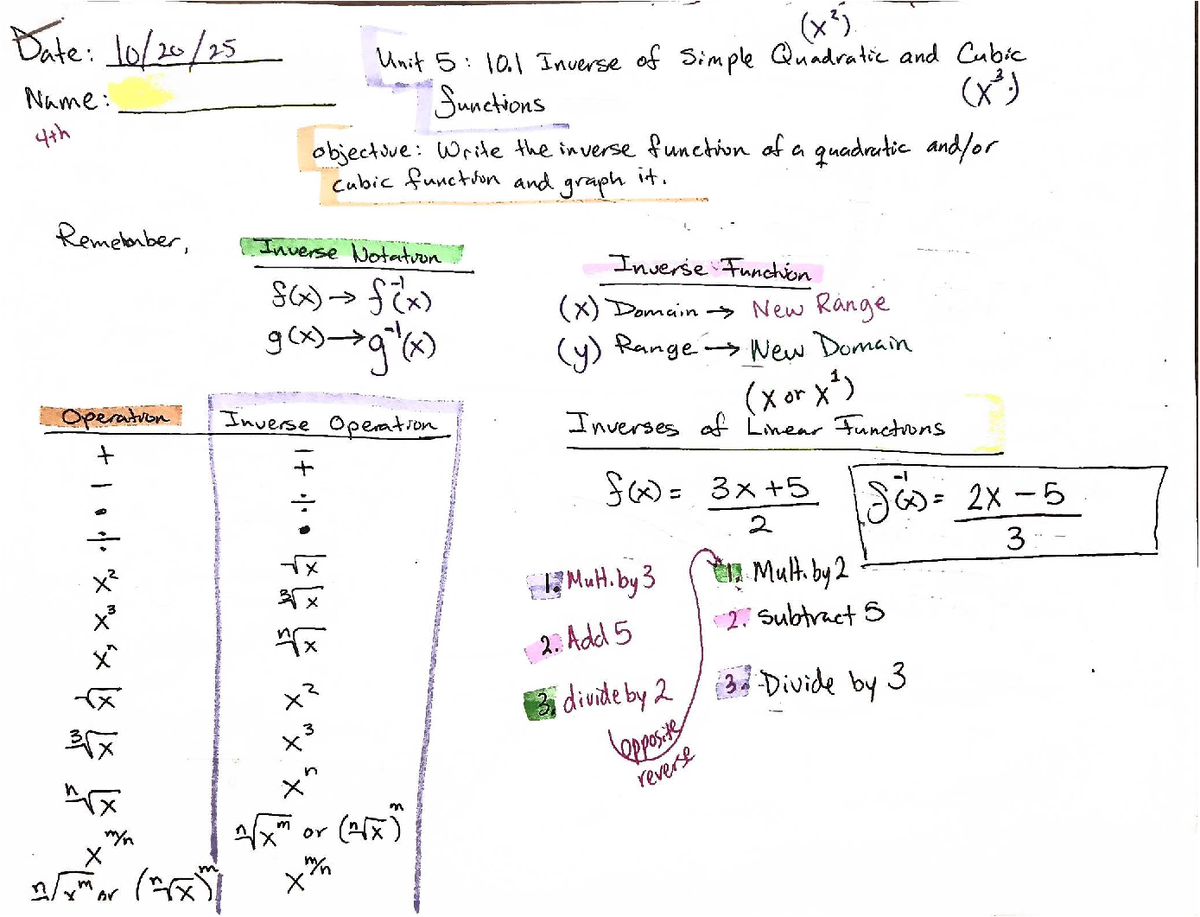 Date: 10/20/25
Name:
4th
(x²)
Unit 5: 10.1 Inverse of Simple Quadratic and Cubic
(x³)
functions
objective: Write the inverse function of a quadratic and/or
cubic function and graph it.
Remember,
Inverse Notation
f(x) → f⁻¹(x)
g(x) → g⁻¹(x)
Inverse Function
(x) Domain → New Range
(y) Range → New Domain
Operation | Inverse Operation
+ | −
− | +
• | ÷
÷ | •
x² | √x
x³ | ∛x
xⁿ | ⁿ√x
√x | x²
∛x | x³
ⁿ√x | xⁿ
x^m/n | ⁿ√x^m or (ⁿ√x)^m
ⁿ√x^m or (ⁿ√x)^m | x^m/n
(x or x¹)
Inverses of Linear Functions
f(x) = 3x+5 / 2
f⁻¹(x) = 2x − 5 / 3
1. Mult. by 3
2. Add 5
3. divide by 2
opposite
reverse
1. Mult. by 2
2. Subtract 5
3. Divide by 3